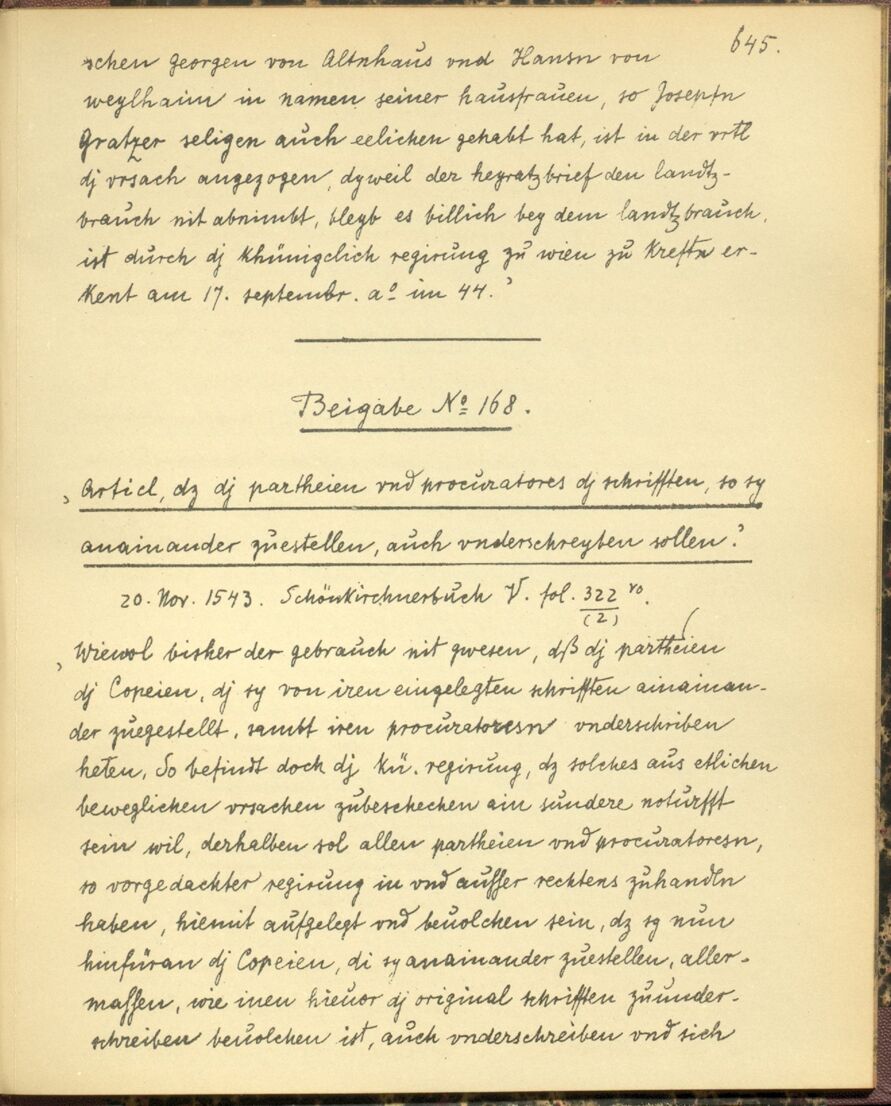 645.
schen georgen von Altnhaus vnd Hansn von
weylhaim in namen seiner hausfrauen, so Josephn
Gratzer seligen auch eelichen gehabt hat, ist in der vrtl
dj vrsach angezogen, dyweil der heyratzbrief den landtz-
brauch nit abnimbt, bleyb es billich bey dem landtzbrauch,
ist durch dj Khünigclich regirung zu wien zu Kreftn er-
Kent am 17. septembr. aº im 44.'
Beigabe Nº 168.
'Articl, dz dj partheien vnd procuratores dj schrifften, so sy
anainander zuestellen, auch vnderschreyben sollen.'
20. Nov. 1543. Schönkirchnerbuch V. fol. 322/(2) ro.
'Wiewol bisher der gebrauch nit gwesen, dß dj partheien
dj Copeien, dj sy von iren eingelegten schrifften ainainan-
der zuegestellt, sambt iren procuratoresn vnderschriben
heten, So befindt doch dj kü. regirung, dz solches aus etlichen
beweglichen vrsachen zubeschechen ain sundere noturfft
sein wil, derhalben sol allen partheien vnd procuratoresn,
so vorgedachter regirung in vnd ausser rechtens zuhandln
haben, hiemit aufgelegt vnd beuolchen sein, dz sy nun
hinfüran dj Copeien, di sy anainander zuestellen, aller-
massen, wie inen hieuor dj original schrifften zuunder-
schreiben beuolchen ist, auch vnderschreiben vnd sich